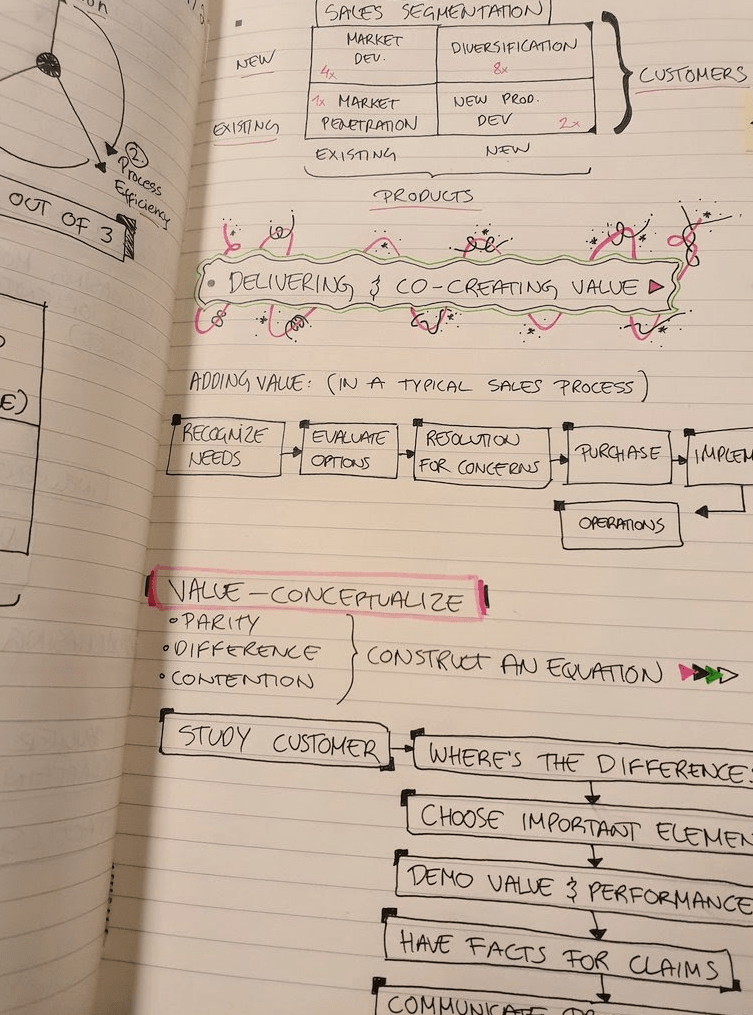 ②
Process
Efficiency
OUT OF 3
E)
SALES SEGMENTATION
NEW
MARKET
DEV.
4x
DIVERSIFICATION
8x
EXISTING
1x MARKET
PENETRATION
NEW PROD.
DEV 2x
CUSTOMERS
EXISTING NEW
PRODUCTS
• DELIVERING & CO-CREATING VALUE
ADDING VALUE: (IN A TYPICAL SALES PROCESS)
RECOGNIZE
NEEDS
EVALUATE
OPTIONS
RESOLUTION
FOR CONCERNS
PURCHASE
IMPLEM
OPERATIONS
VALUE – CONCEPTUALIZE
• PARITY
• DIFFERENCE
• CONTENTION
CONSTRUCT AN EQUATION
STUDY CUSTOMER
WHERE'S THE DIFFERENCE
CHOOSE IMPORTANT ELEMEN
DEMO VALUE & PERFORMANCE
HAVE FACTS FOR CLAIMS
COMMUNICATE